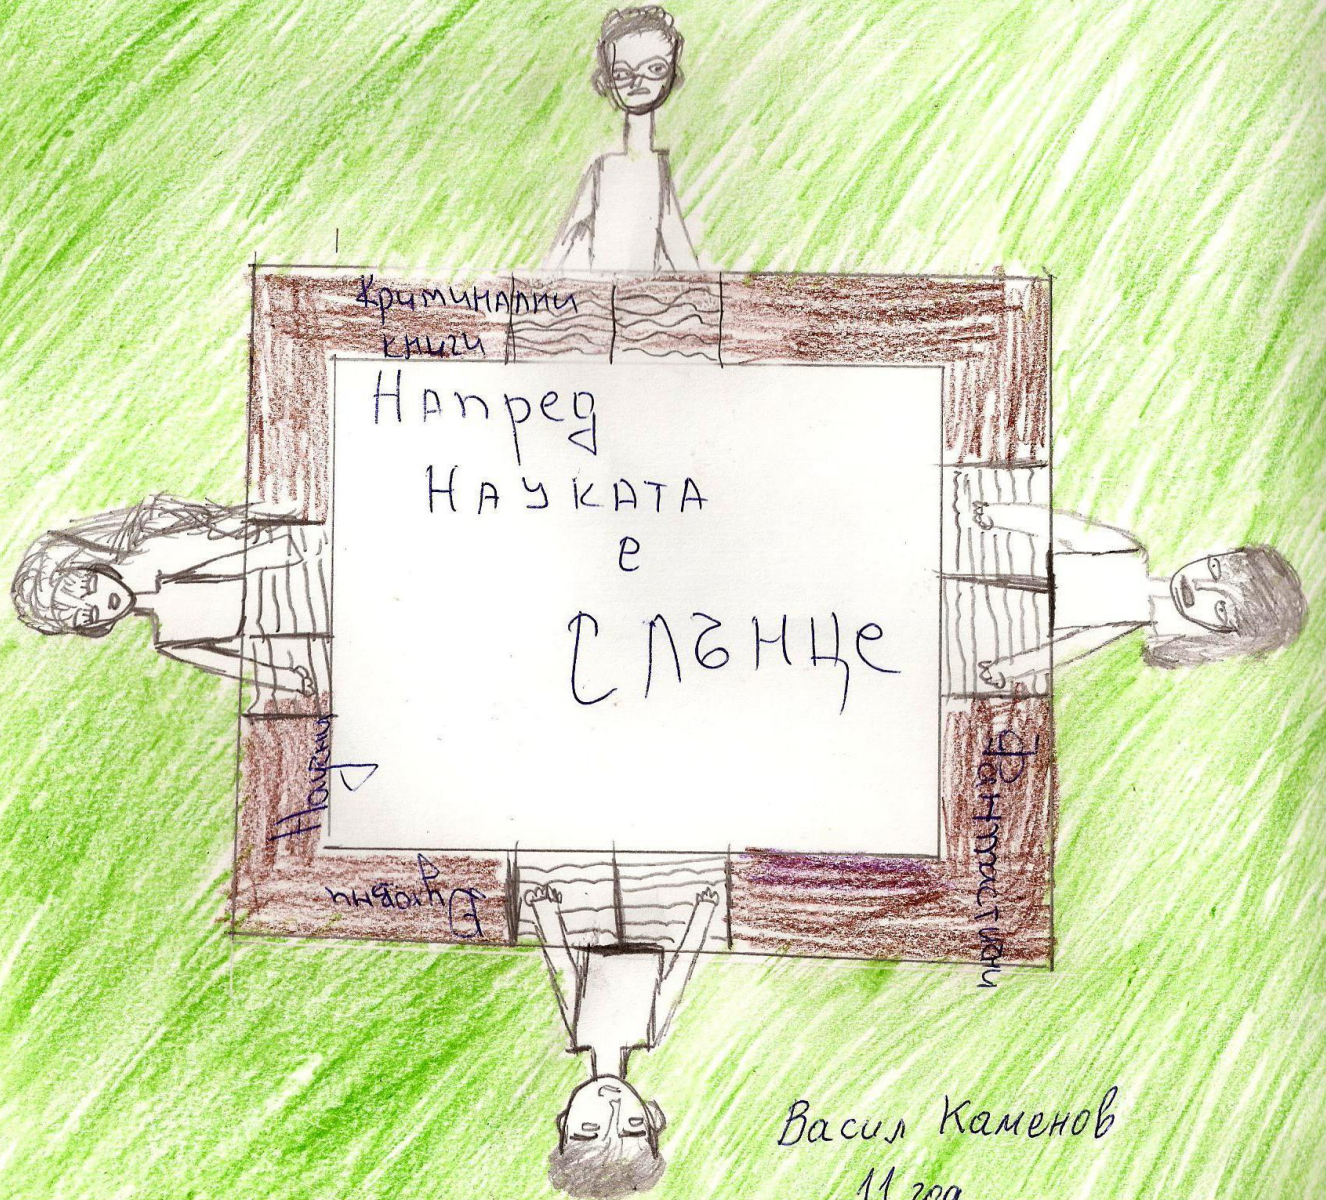 Криминални
книги
Напред
НАУКАТА
е
Слънце
Научни
Фантастични
Духовни
Васил Каменов
11 год.